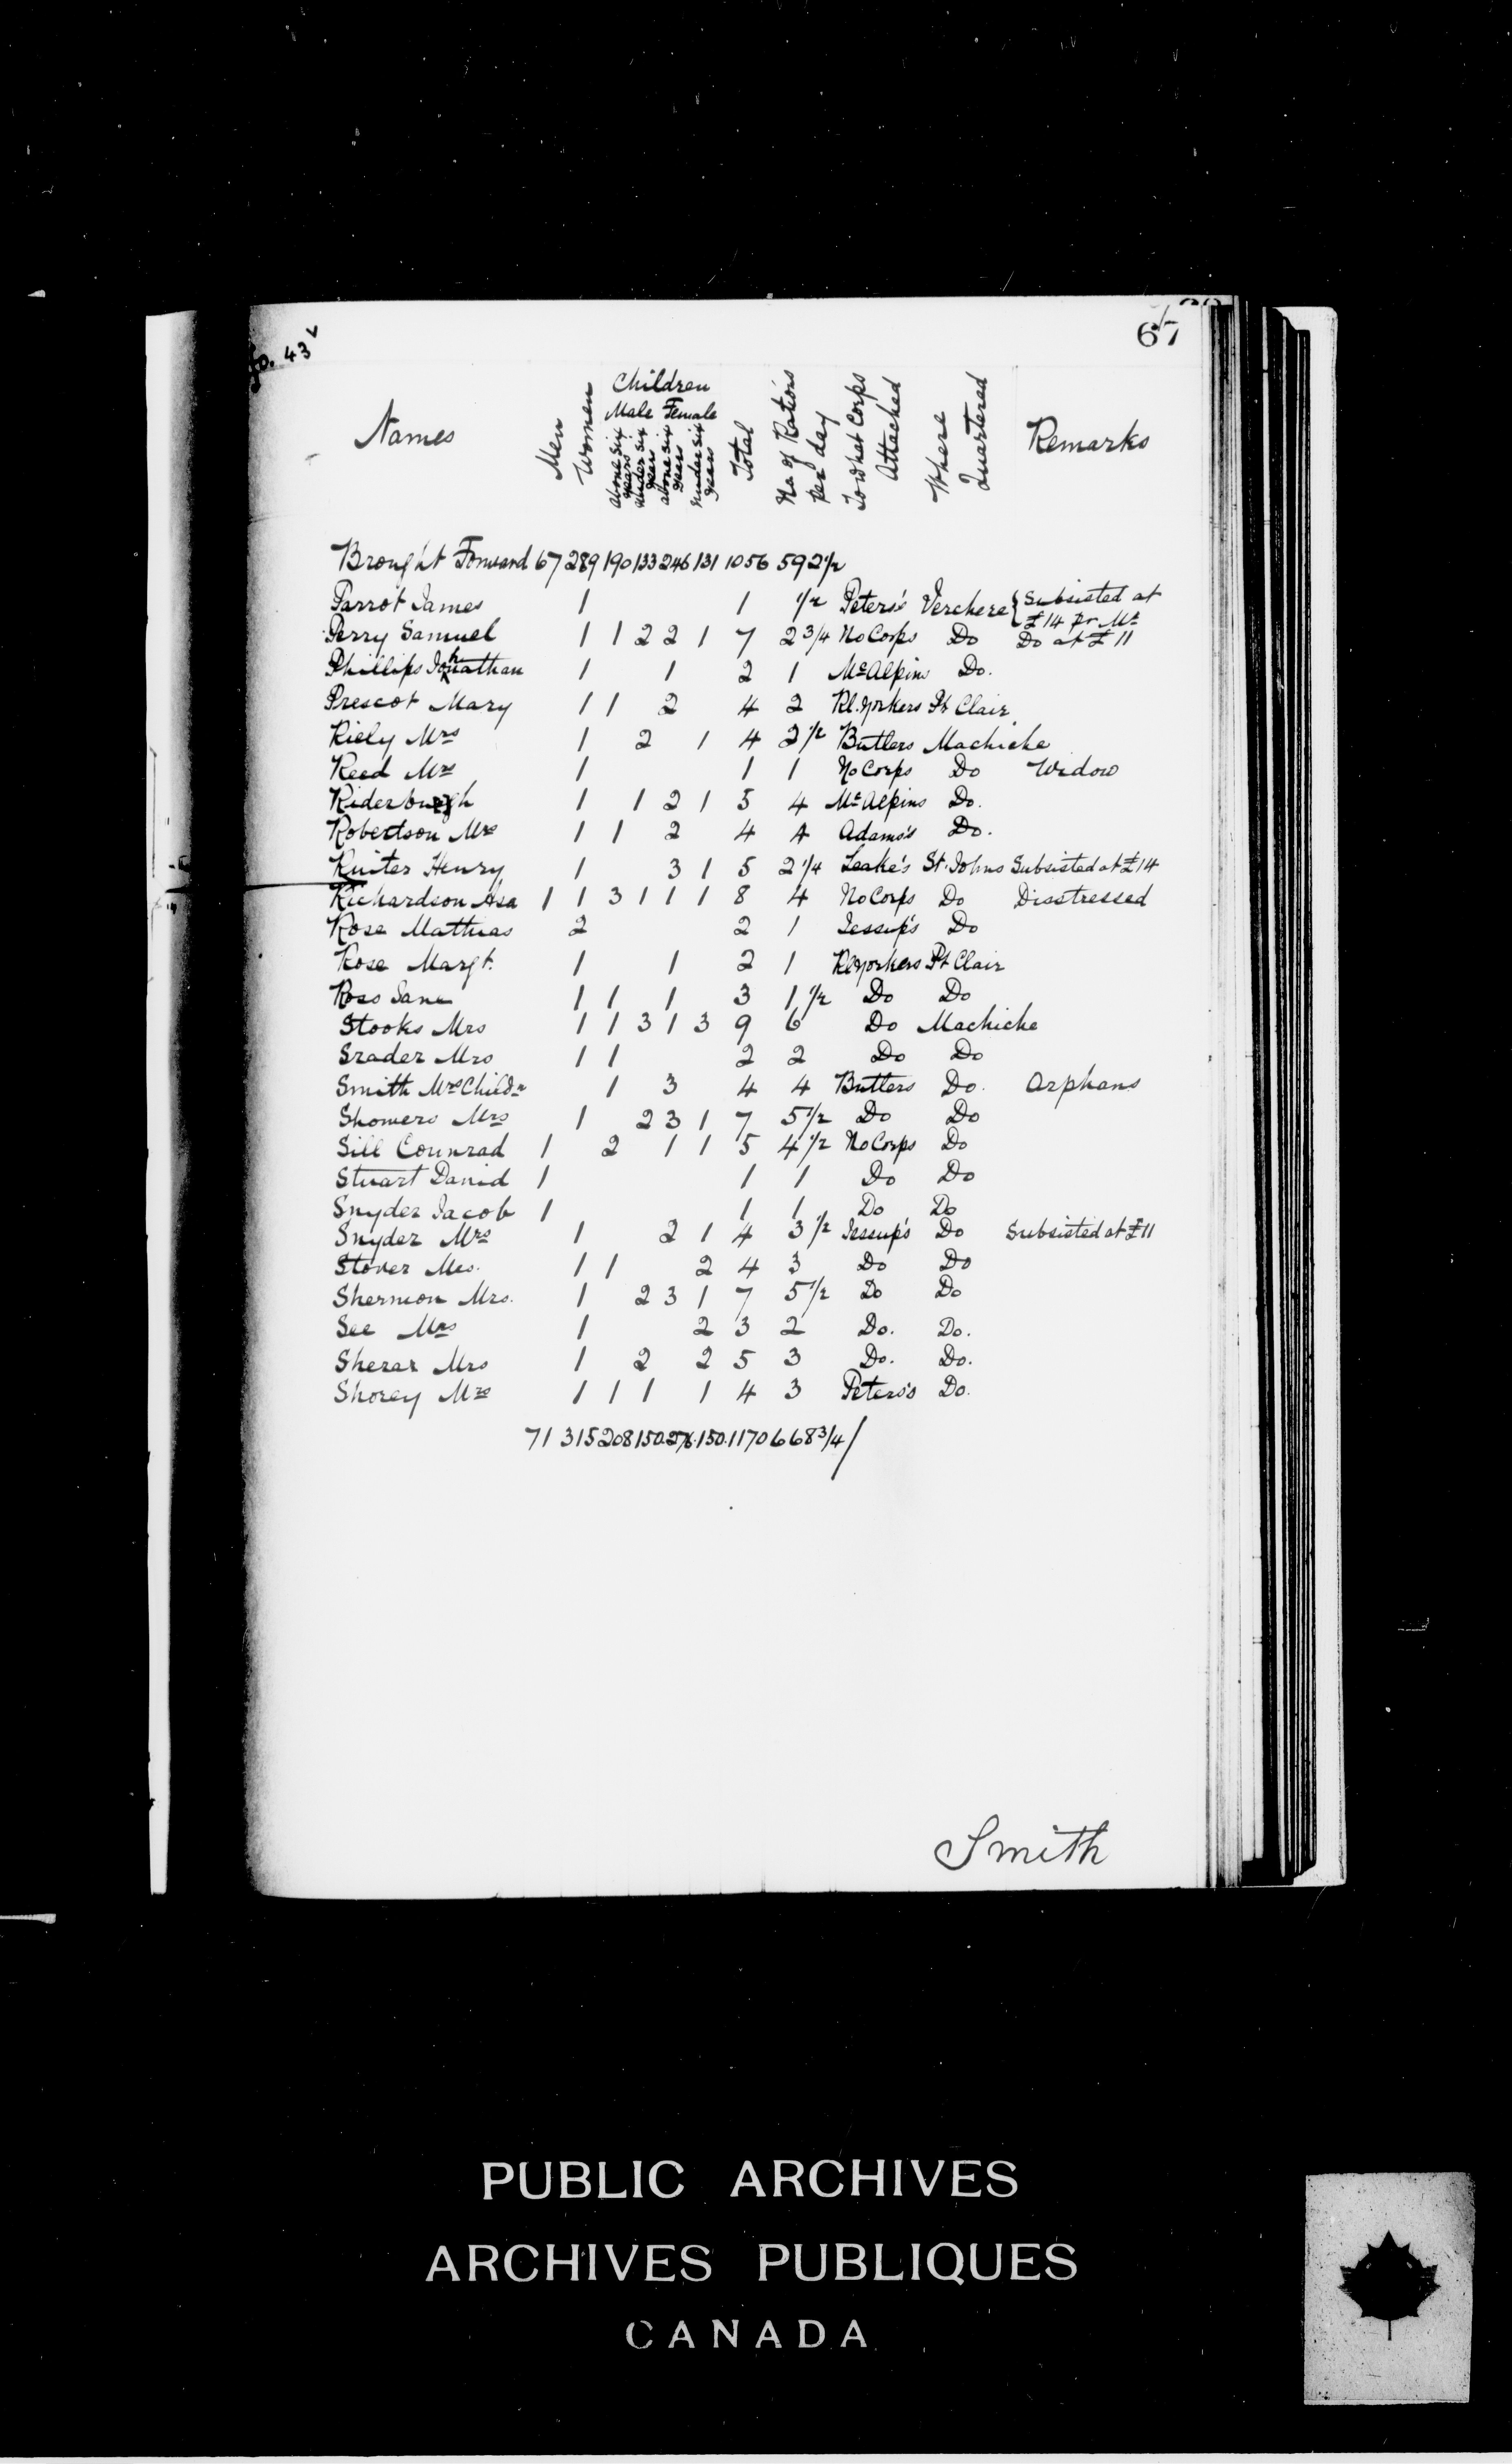 fo. 43
67
Names Men Women Children Male Female above six years under six years above six years under six years Total No of Rations per day To what Corps Attached Where Quartered Remarks
Brought Forward 67 289 190 133 246 131 1056 592 1/2
Parrot James 1 1 1/2 Peters's Verchere { Subsisted at £14 pr Mt
Perry Samuel 1 1 2 2 1 7 2 3/4 No Corps Do Do at £11
Phillips Jonathan 1 1 2 1 McAlpins Do.
Prescot Mary 1 1 2 4 2 Rl. Yorkers Pt Clair
Riely Mrs 1 2 1 4 2 1/2 Butlers Machiche
Reed Mrs 1 1 1 No Corps Do Widow
Riderburgh 1 1 2 1 5 4 McAlpins Do.
Robertson Mrs 1 1 2 4 4 Adams's Do.
Ruiter Henry 1 3 1 5 2 1/4 Leake's St. Johns Subsisted at £14
Richardson Asa 1 1 3 1 1 1 8 4 No Corps Do Disstressed
Rose Mathias 2 2 1 Jessup's Do
Rose Margt. 1 1 2 1 Rl Yorkers Pt Clair
Ross Jane 1 1 1 3 1 1/2 Do Do
Stooks Mrs 1 1 3 1 3 9 6 Do Machiche
Srader Mrs 1 1 2 2 Do Do
Smith Mrs Childn 1 3 4 4 Butlers Do. Orphans
Showers Mrs 1 2 3 1 7 5 1/2 Do Do
Sill Counrad 1 2 1 1 5 4 1/2 No Corps Do
Stuart David 1 1 1 Do Do
Snyder Jacob 1 1 1 Do Do
Snyder Mrs 1 2 1 4 3 1/2 Jessup's Do Subsisted at £11
Stover Mrs. 1 1 2 4 3 Do Do
Shermon Mrs. 1 2 3 1 7 5 1/2 Do Do
See Mrs 1 2 3 2 Do. Do.
Sherar Mrs 1 2 2 5 3 Do. Do.
Shorey Mrs 1 1 1 1 4 3 Peters's Do.
71 315 208 150. 276. 150. 1170 668 3/4/
Smith
PUBLIC ARCHIVES
ARCHIVES PUBLIQUES
CANADA